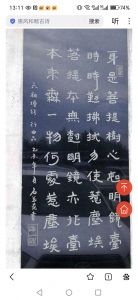 13:11
74%
惠风和畅古诗
听
身是菩提樹心如明鏡臺
時時勤拂拭勿使惹塵埃
菩提本無樹明鏡亦非臺
本來無一物何處惹塵埃